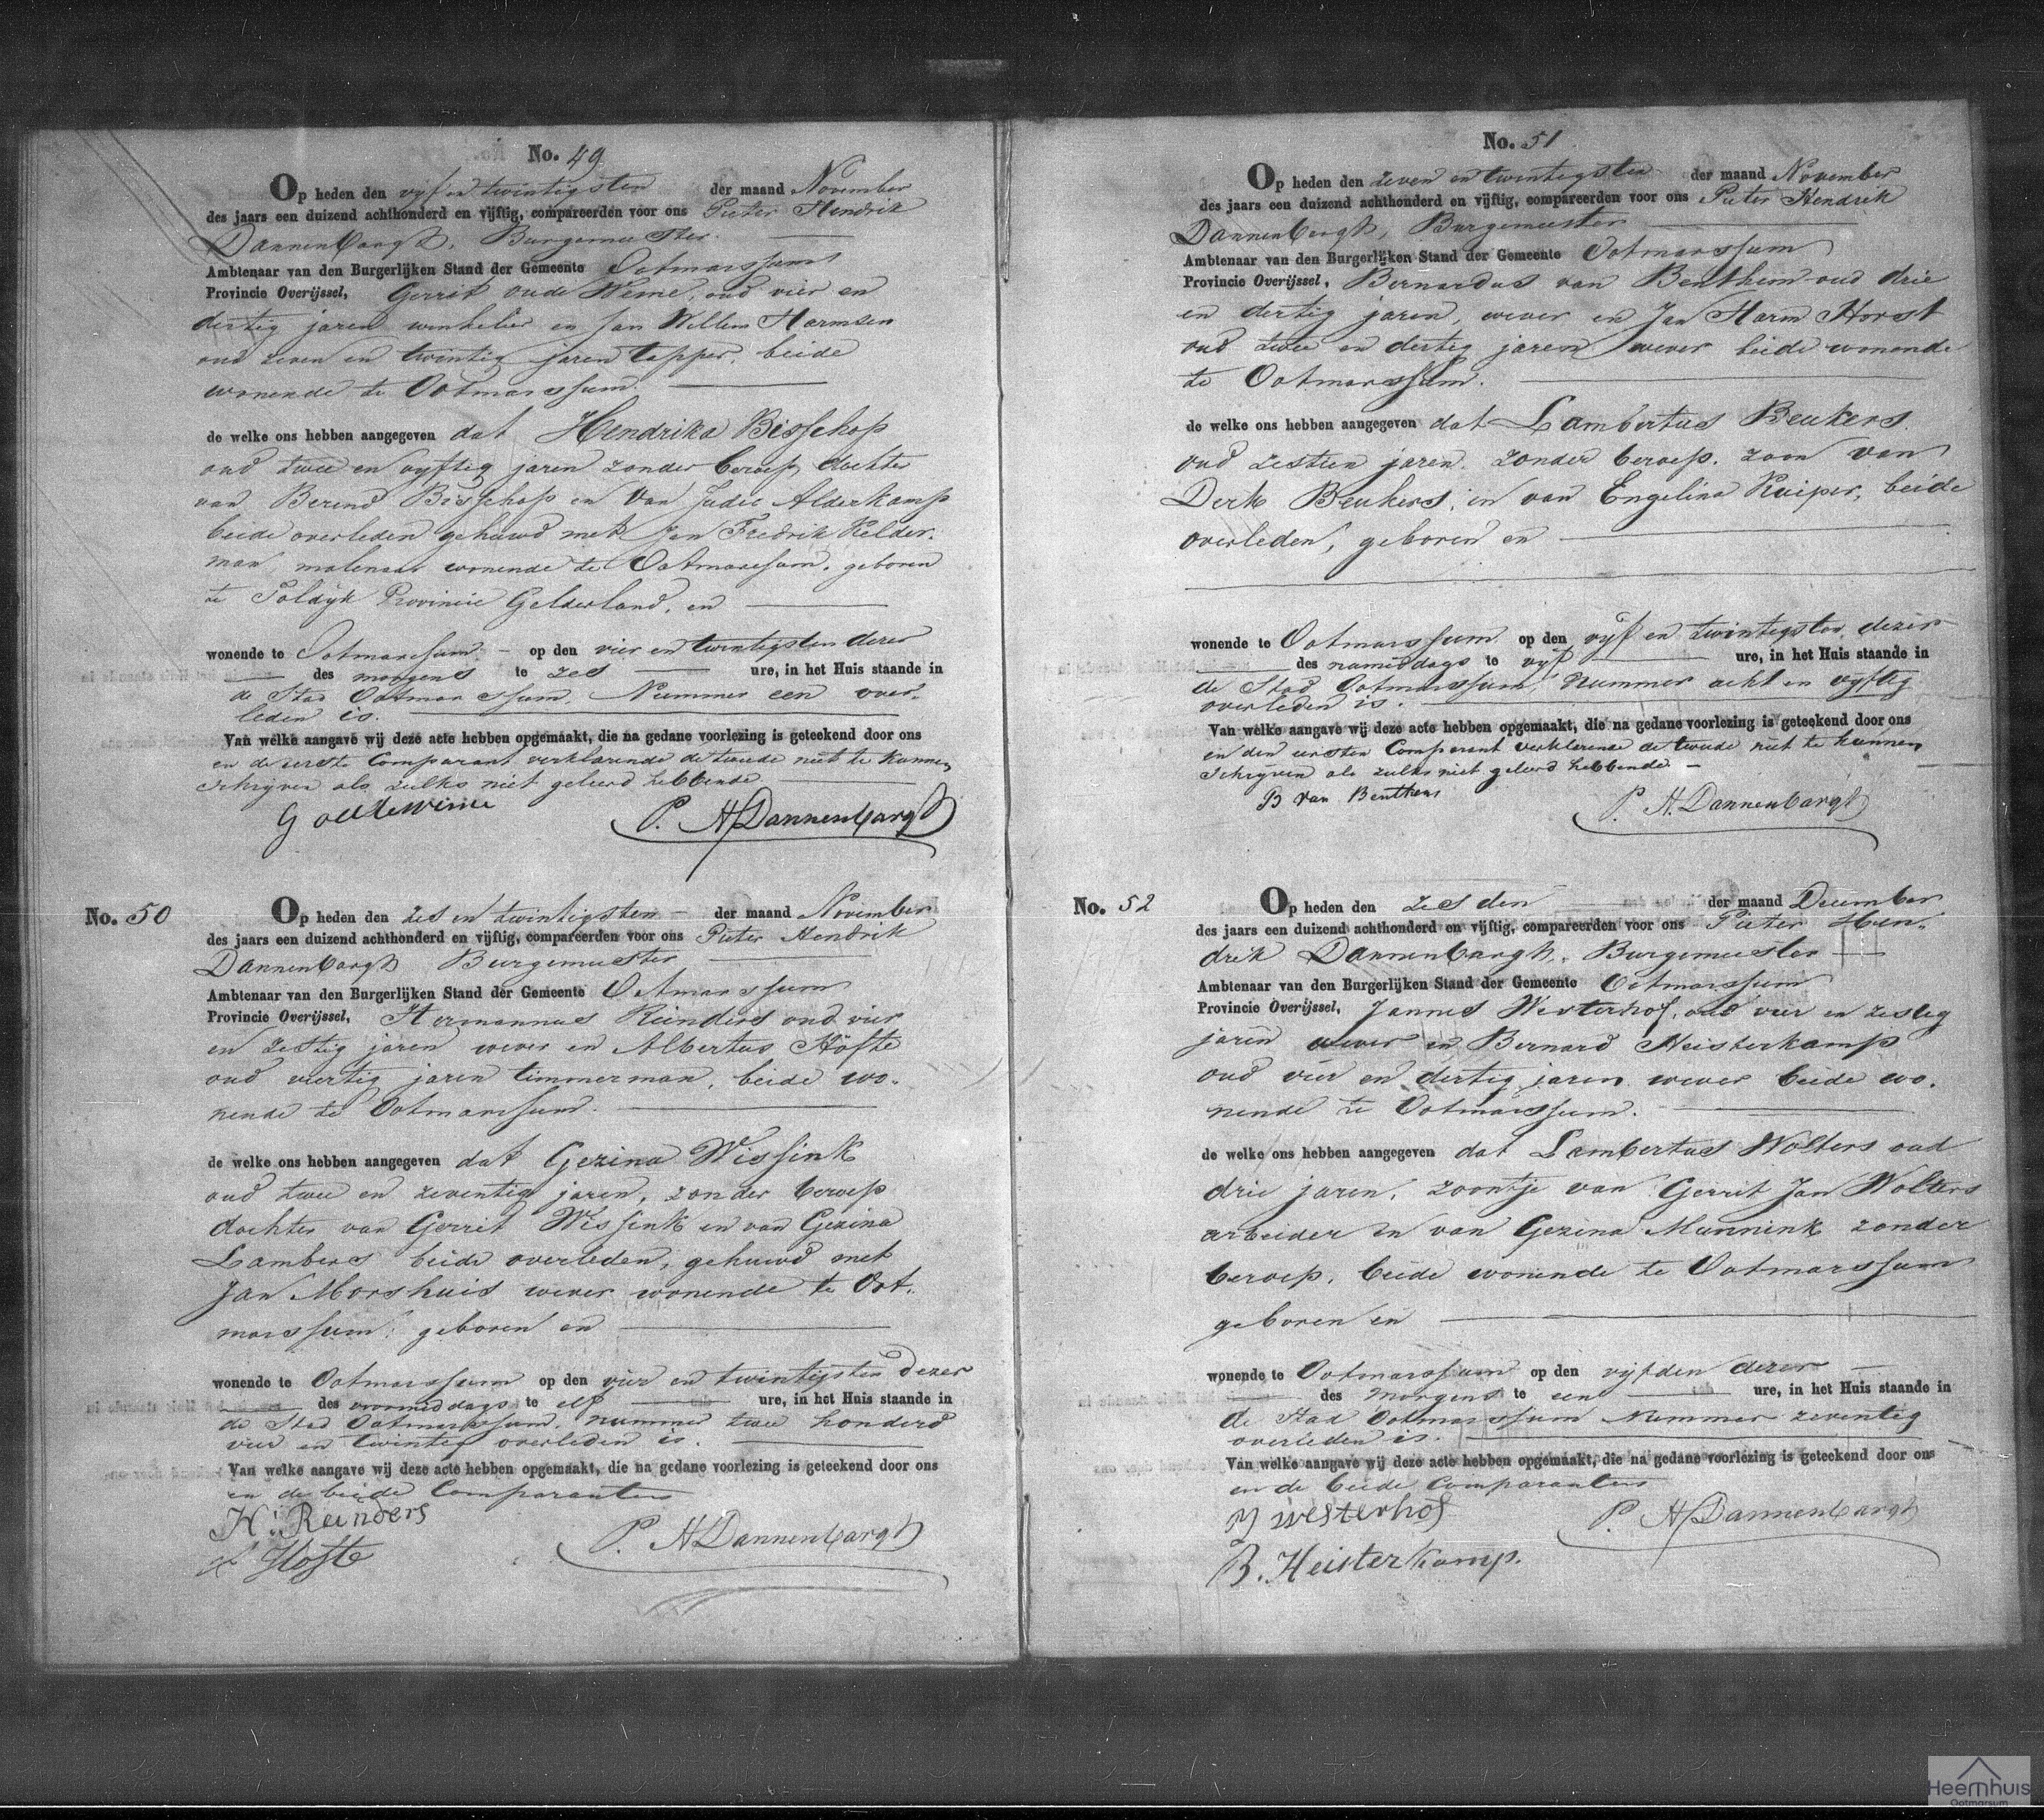 No. 49
Op heden den vijf en twintigsten der maand November
des jaars een duizend achthonderd en vijftig, compareerden voor ons Pieter Hendrik
Dannenbargh, Burgemeester
Ambtenaar van den Burgerlijken Stand der Gemeente Ootmarssum
Provincie Overijssel, Gerrit oude Weme, oud vier en
dertig jaren winkelier en Jan Willem Harmsen
oud zeven en twintig jaren tapper, beide
wonende te Ootmarssum.
de welke ons hebben aangegeven dat Hendrika Bisschop
oud twee en vyftig jaren zonder beroep, dochter
van Berend Bisschop en van Judic Alderkamp
beide overleden gehuwd met Jan Fredrik Kelder-
man, molenaar wonende te Ootmarssum, geboren
te Toldyk Provincie Gelderland, en
wonende te Ootmarssum - op den vier en twintigsten dezer
des morgens te zes ure, in het Huis staande in
de Stad Ootmarssum, Nummer een over-
leden is.
Van welke aangave wij deze acte hebben opgemaakt, die na gedane voorlezing is geteekend door ons
en de eerste Comparant verklarende de tweede niet te kunnen
schrijven als zulks niet geleerd hebbende
G oude Weme P. H Dannenbargh
No. 50
Op heden den zes en twintigsten - der maand November
des jaars een duizend achthonderd en vijftig, compareerden voor ons Pieter Hendrik
Dannenbargh Burgemeester
Ambtenaar van den Burgerlijken Stand der Gemeente Ootmarssum
Provincie Overijssel, Hermannus Reinders oud vier
en zestig jaren wever en Albertus Höfte
oud viertig jaren timmerman, beide wo-
nende te Ootmarssum.
de welke ons hebben aangegeven dat Gezina Wissink
oud twee en zeventig jaren, zonder beroep
dochter van Gerrit Wissink en van Gezina
Lambers beide overleden, gehuwd met
Jan Morshuis wever wonende te Oot-
marssum, geboren en
wonende te Ootmarssum op den vier en twintigsten dezer
des voormiddags te elf ure, in het Huis staande in
de Stad Ootmarssum, nummer twee honderd
vier en twintig overleden is.
Van welke aangave wij deze acte hebben opgemaakt, die na gedane voorlezing is geteekend door ons
en de beide Comparanten
H. Reinders
Hofte P. H Dannenbargh
No. 51
Op heden den zeven en twintigsten der maand November
des jaars een duizend achthonderd en vijftig, compareerden voor ons Pieter Hendrik
Dannenbergh, Burgemeester
Ambtenaar van den Burgerlijken Stand der Gemeente Ootmarssum
Provincie Overijssel, Bernardus van Benthem oud drie
en dertig jaren, wever en Jan Harm Horst
oud twee en dertig jaren wever beide wonende
te Ootmarssum.
de welke ons hebben aangegeven dat Lambertus Beukers
oud zestien jaren, zonder beroep, zoon van
Derk Beukers, en van Engelina Kuiper, beide
overleden, geboren en
wonende te Ootmarssum op den vyf en twintigsten dezer
des namiddags te vyf ure, in het Huis staande in
de Stad Ootmarssum, Nummer acht en vyftig
overleden is.
Van welke aangave wij deze acte hebben opgemaakt, die na gedane voorlezing is geteekend door ons
en den eersten Comparant verklarende de tweede niet te kunnen
schrijven als zulks niet geleerd hebbende -
B van Benthem P. H. Dannenbargh
No. 52
Op heden den zesden der maand December
des jaars een duizend achthonderd en vijftig, compareerden voor ons Pieter Hen-
drik Dannenbargh, Burgemeester
Ambtenaar van den Burgerlijken Stand der Gemeente Ootmarssum
Provincie Overijssel, Jannes Westerhof, oud vier en zestig
jaren wever en Bernard Heisterkamp
oud vier en dertig jaren wever beide wo-
nende te Ootmarssum.
de welke ons hebben aangegeven dat Lambertus Wolters oud
drie jaren, zoontje van Gerrit Jan Wolters
arbeider en van Gezina Mennink zonder
beroep, beide wonende te Ootmarssum
geboren en
wonende te Ootmarssum op den vijfden dezer
des morgens te een ure, in het Huis staande in
de Stad Ootmarssum Nummer zeventig
overleden is.
Van welke aangave wij deze acte hebben opgemaakt, die na gedane voorlezing is geteekend door ons
en de beide Comparanten
J Westerhof P. H Dannenbargh
B. Heisterkamp.
Heemhuis
Ootmarsum